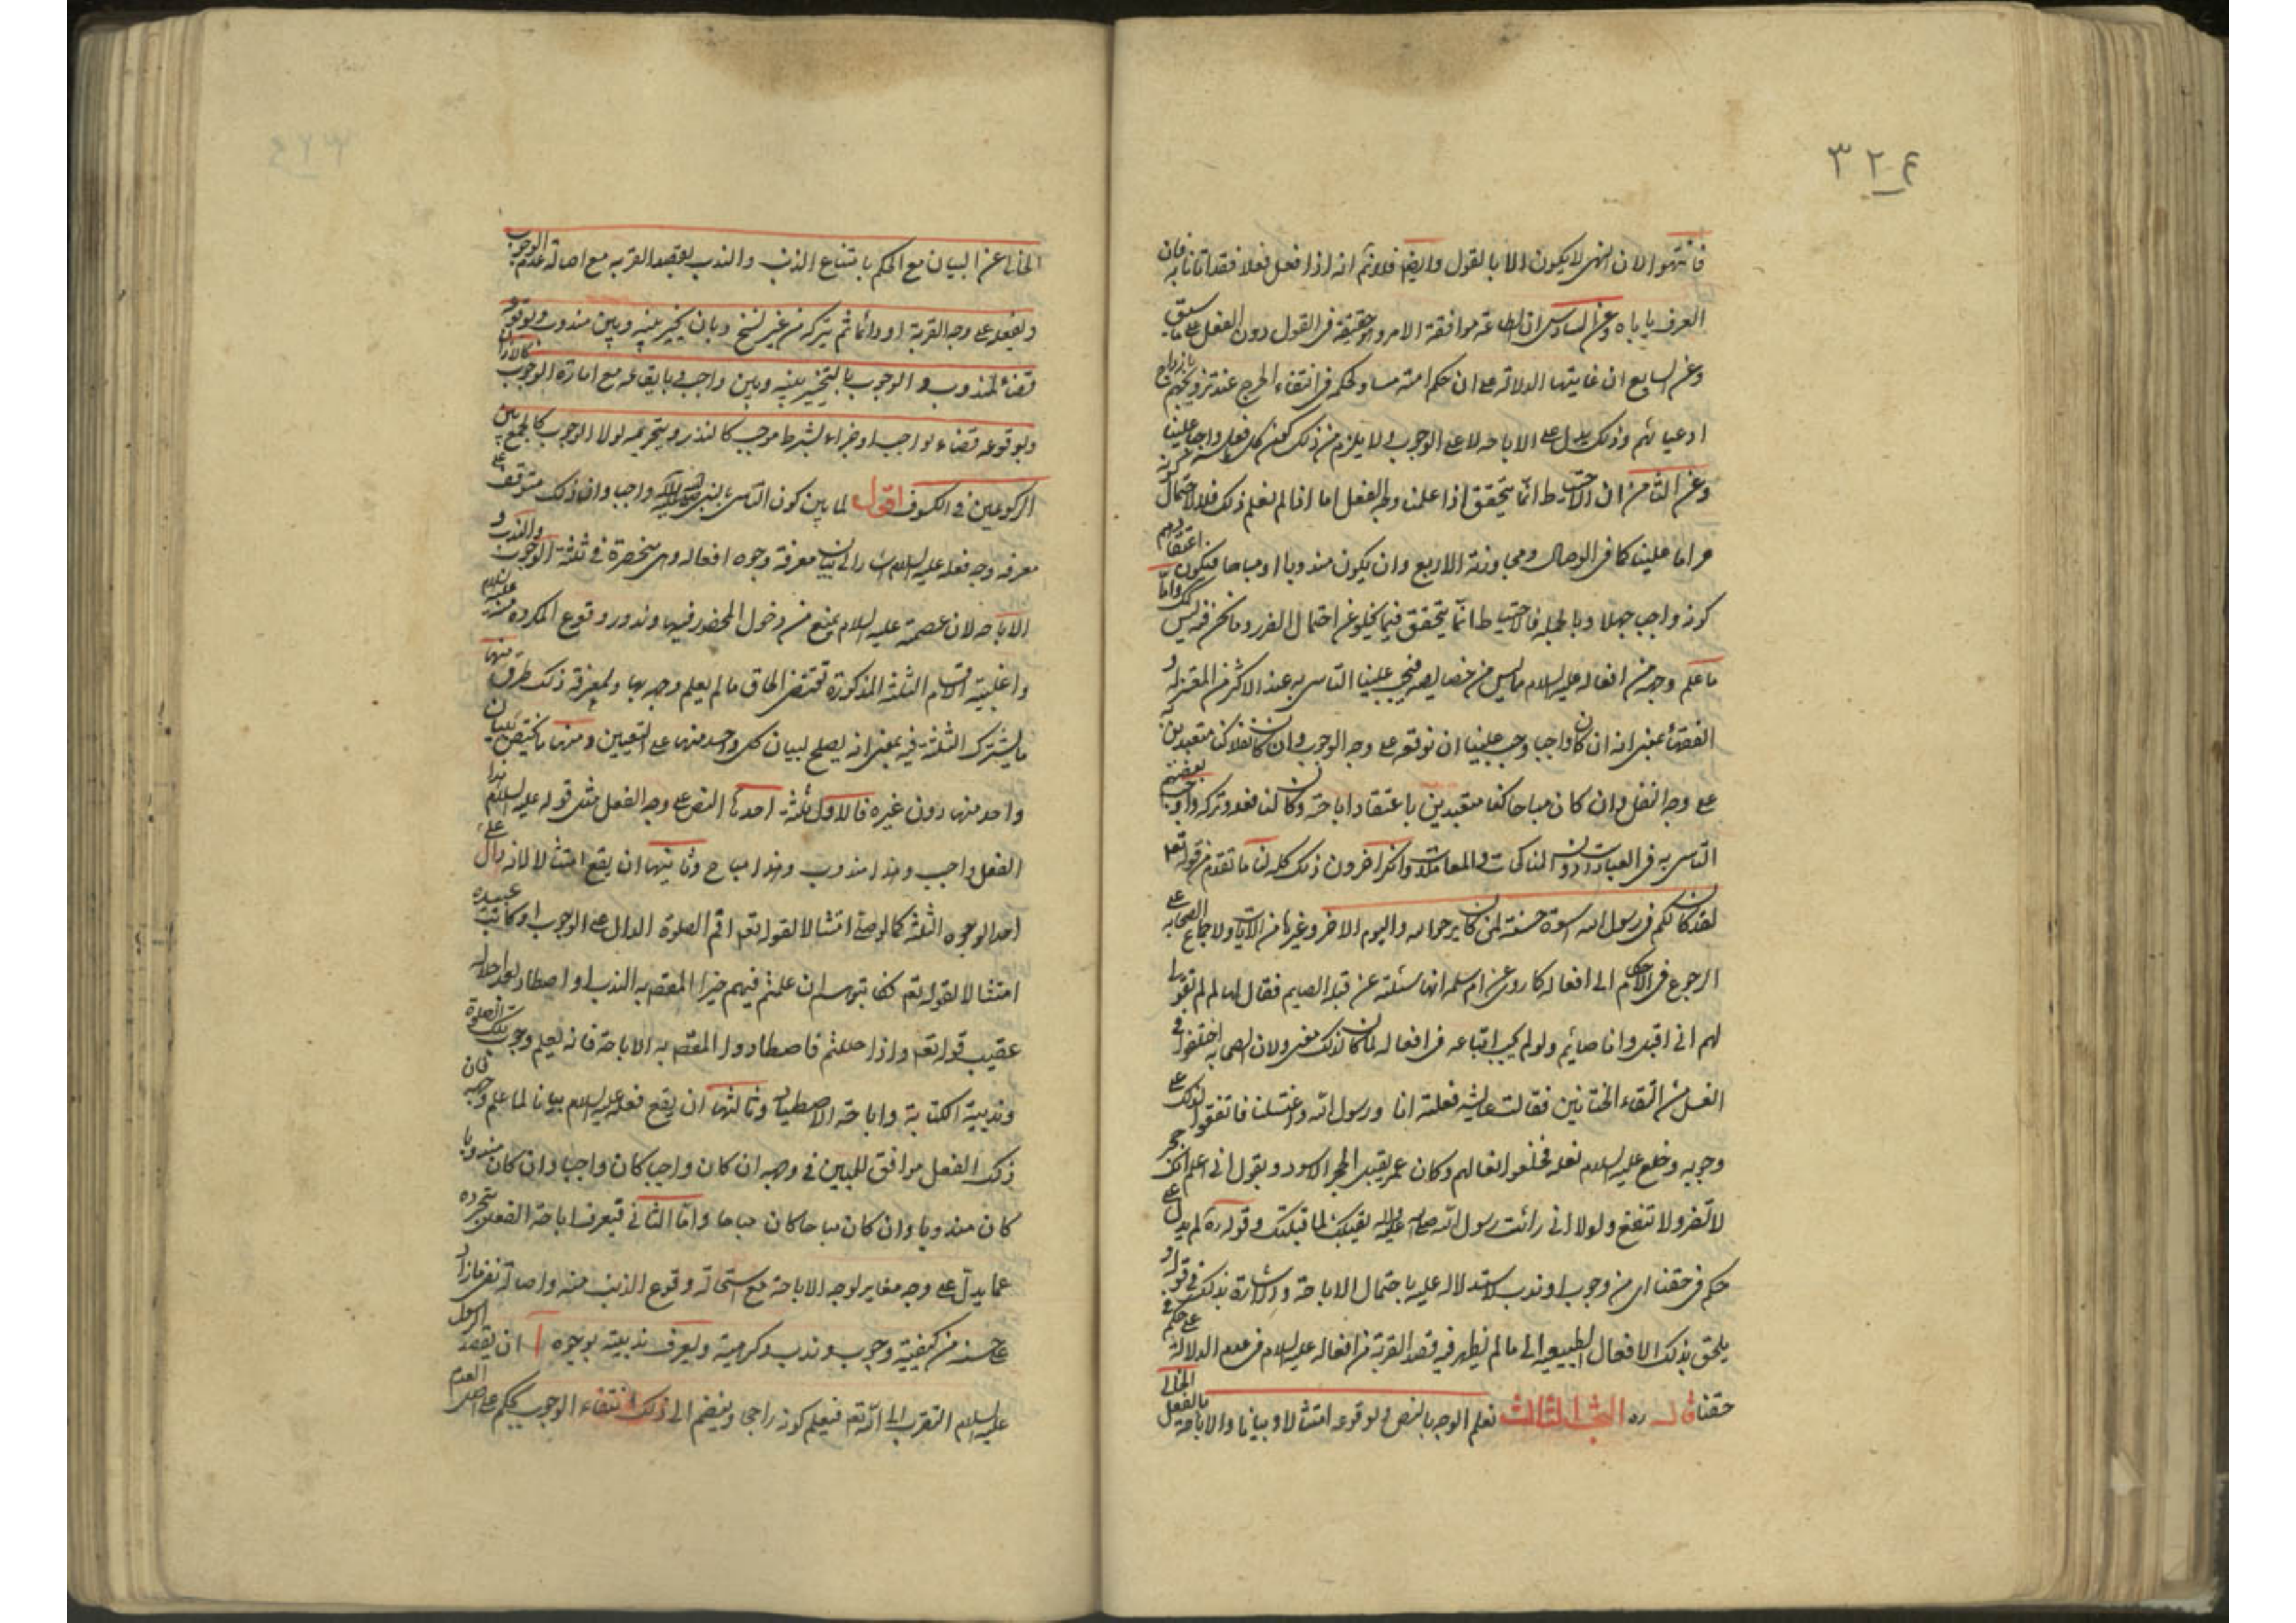 ٣٢٤
فانتهوا لان النهى لا يكون الا بالقول وايضا فلا نم انه اذا فعل فعلا فقد اتانا به فان
العرف ياباه وعن السادس ان الطاعة موافقة الامر وهو حقيقة فى القول دون الفعل على ما سبق
وعن السابع ان غايتها الدلالة على ان حكم امته مساو لحكمه فى انتفاء الحرج عند تزويجهم بازواج
ادعيائهم وذلك يدل على الاباحة لا على الوجوب ولا يلزم من ذلك كون كل فعل واجبا علينا
وعن الثامن ان الاحتياط انما يتحقق اذا علمنا وجه الفعل اما اذا لم نعلم ذلك فلا لاحتمال كونه
حراما علينا كما فى الوصال ومجاوزة الاربع وان يكون مندوبا او مباحا فيكون اعتقادهم
كونه واجب جهلا وبالجملة فالاحتياط انما يتحقق فيما يخلو عن احتمال الضرر وما نحن فيه ليس كك واما
ما علم وجهه من افعاله عليه السلام مما ليس من خصايصه فيجب علينا التاسى به عند الاكثر من المعتزلة و
الفقهاء بمعنى انه ان كان واجبا وجب علينا ان نوقعه على وجه الوجوب وان كان نفلا كنا متعبدين به
على وجه النفل وان كان مباحا كنا متعبدين باعتقاد اباحته وكان لنا فعله وتركه واوجب بعضهم
التاسى به فى العبادات دون المناكحات والمعاملات وانكر اخرون ذلك كله لنا ما تقدم من قوله تعالى
لقد كان لكم فى رسول الله اسوة حسنة لمن كان يرجوا الله واليوم الاخر وغيرها من الايات ولاجماع الصحابة على
الرجوع فى الاحكام الى افعاله كما روى عن ام سلمة انها سئلته عن قبلة الصايم فقال لها لم لم تقولى
لهم انى اقبل وانا صائم ولو لم يجب اتباعه فى افعاله لما كان لذلك معنى ولان الصحابة اختلفوا فى
الغسل من التقاء الختانين فقالت عايشة فعلته انا ورسول الله واغتسلنا فاتفقوا لذلك على
وجوبه وخلع عليه السلام نعله فخلعوا نعالهم وكان عمر يقبل الحجر الاسود ويقول انى اعلم انك حجر
لا تضر ولا تنفع ولولا انى رائت رسول الله صلى الله عليه واله يقبلك لما قبلتك وقوله ره لم يدل على
حكم فى حقنا اى من وجوب او ندب لاستدلاله عليه باحتمال الاباحة والاشارة بذلك فى قوله و
يلحق بذلك الافعال الطبيعية الى ما لم يظهر فيه قصد القربة من افعاله عليه السلام فى عدم الدلالة على حكم فى
حقنا قال ره البحث الثالث نعلم الوجه بالنص وبوقوعه امتثالا وبيانا والاباحة بالفعل الخالى
الخالى عن البيان مع الحكم بامتناع الذنب والندب بقصد القربة مع اصالة عدم الوجوب
وبفعله على وجه القربة او دائما ثم يتركه من غير نسخ وبان يخير بينه وبين مندوب وبوقوعه
قضاء لمندوب والوجوب بالتخيير بينه وبين واجب وبايقاعه مع امارة الوجوب كالاذان
وبوقوعه قضاء لواجب او جزاء لشرط موجب كالنذر وبتحريمه لولا الوجوب كالجمع بين
الركوعين فى الكسوف اقول لما بين كون التاسى بالنبى صلى الله عليه واله واجبا وان ذلك متوقف على
معرفة وجه فعله عليه السلام اشار الى بيان معرفة وجوه افعاله وهى منحصرة فى ثلثة الوجوب والندب و
الاباحة لان عصمته عليه السلام تمنع من دخول المحضور فيها وندور وقوع المكروه منه عليه السلام
واغلبية الاقسام الثلثة المذكورة تقتضى الحاق ما لم يعلم وجهه بها ولمعرفة ذلك طرق منها
ما يشترك الثلثة فيه بمعنى انه يصلح لبيان كل واحد منها على التعيين ومنها ما يختص ببيان
واحد منها دون غيره فالاول ثلثة احدها النص على وجه الفعل مثل قوله عليه السلام هذا
الفعل واجب وهذا مندوب وهذا مباح وثانيها ان يقع امتثالا لانه دال على
احد الوجوه الثلثة كما لو صلى امتثالا لقوله تعالى اقم الصلوة الدال على الوجوب او كاتب عبيده
امتثالا لقوله تعالى فكاتبوهم ان علمتم فيهم خيرا المقصود به الندب او اصطاد بعد احلاله
عقيب قوله تعالى واذا حللتم فاصطادوا المقصود به الاباحة فانه يعلم وجوب تلك الصلوة
وندبية الكتابة واباحة الاصطياد وثالثها ان يقع فعله عليه السلام بيانا لما علم وجهه فان
ذلك الفعل موافق للمبين فى وجهه ان كان واجبا كان واجبا وان كان مندوبا
كان مندوبا وان كان مباحا كان مباحا واما الثانى فيعرف اباحة الفعل بتجرده
عما يدل على وجه مغاير لوجه الاباحة مع استحالة وقوع الذنب منه واصالة نفى مازاد
على حسنه من كيفية وجوب وندب وكرهية ويعرف ندبيته بوجوه ا ان يقصد الرسول
عليه السلام التقرب الى الله تعالى فيعلم كونه راجحا وينضم الى ذلك انتفاء الوجوب بحكم على اصل العدم